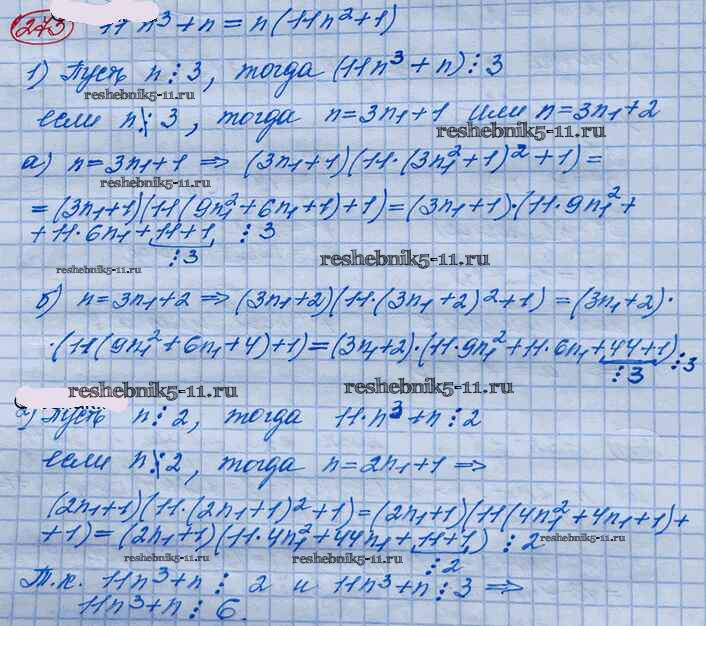 273 11n³+n = n(11n²+1)
1) Пусть n⋮3, тогда (11n³+n)⋮3
reshebnik5-11.ru
если n⋮̸3, тогда n=3n₁+1 или n=3n₁+2
reshebnik5-11.ru
а) n=3n₁+1 ⇒ (3n₁+1)(11·(3n₁²+1)²+1)=
reshebnik5-11.ru
=(3n₁+1)(11(9n₁²+6n₁+1)+1)=(3n₁+1)·(11·9n₁²+
+11·6n₁+11+1) ⋮3
⋮3
reshebnik5-11.ru
reshebnik5-11.ru
б) n=3n₁+2 ⇒ (3n₁+2)(11·(3n₁+2)²+1)=(3n₁+2)·
·(11(9n₁²+6n₁+4)+1)=(3n₁+2)·(11·9n₁²+11·6n₁+44+1)⋮3
⋮3
reshebnik5-11.ru
reshebnik5-11.ru
2) Пусть n⋮2, тогда 11·n³+n⋮2
если n⋮̸2, тогда n=2n₁+1 ⇒
(2n₁+1)(11·(2n₁+1)²+1)=(2n₁+1)(11(4n₁²+4n₁+1)+
reshebnik5-11.ru
+1)=(2n₁+1)(11·4n₁²+44n₁+11+1) ⋮2
reshebnik5-11.ru
⋮2
reshebnik5-11.ru
reshebnik5-11.ru
Т.к. 11n³+n⋮2 и 11n³+n⋮3 ⇒
11n³+n⋮6.